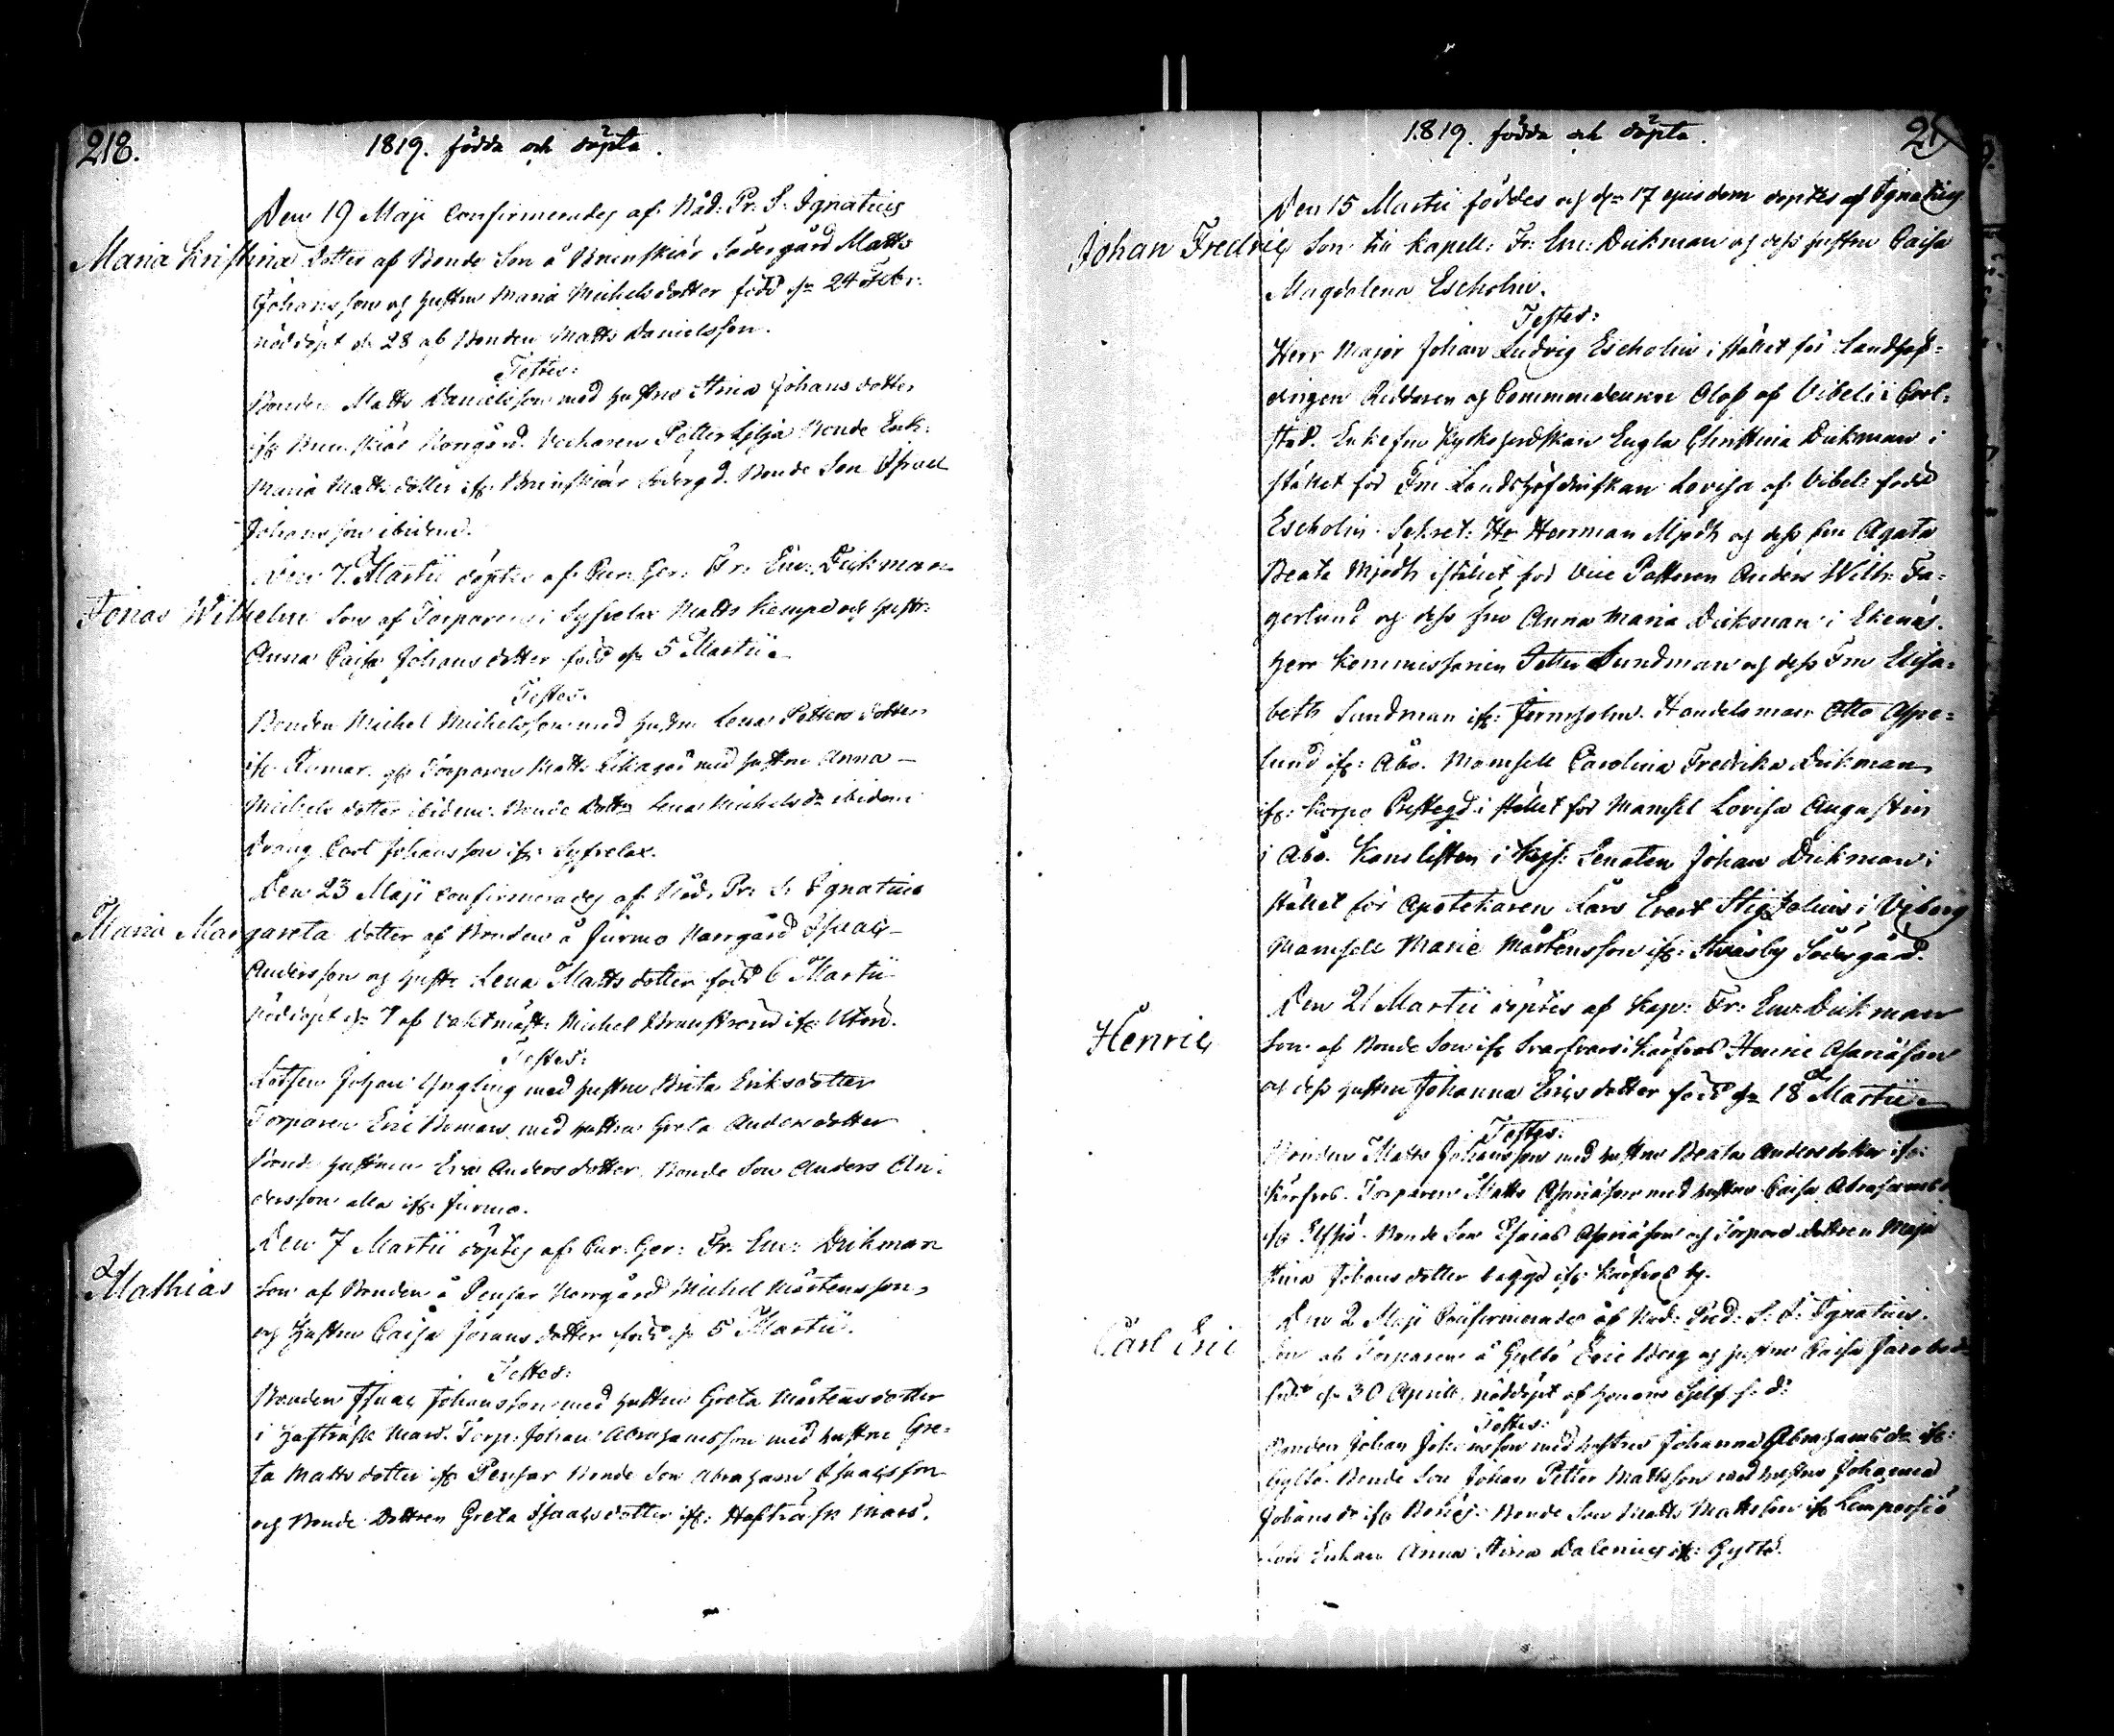 218.
1819. födda och döpta.
Den 19 Maji Confirmerades af Nåd: Pr: S: Ignatius
Maria Kristina dotter af Bonde Son å Brunskiär Södergård Matts
Johansson och hustru Maria Michelsdotter född d. 24 Febr:
nöddöpt d. 28 af Bonden Matts Danielsson.
Testes:
Bonden Matts Danielsson med hustru Stina Johans dotter
ifr. Brunskiär Norrgård. Petter Lilja Bonde Enk:
Maria Matts dotter ifr. Brunskiär Södergd. Bonde Son
Johansson ibidem.
Den 7 Martii döptes af Cur: Ger: Fr: Em: Dickman
Jonas Wilhelm Son af Torparen i Matts Kempe och hustr:
Anna Caisa Johans dotter född d. 5 Martii.
Testes.
Bonden Michel Michelsson med hustru Lena Petters dotter
ifr. Rumar. Torparen Matts med hustru Anna
Michels dotter ibidem. Bonde Dottr. Lena Michels dr ibidem
Dräng Carl Johansson ifr.
Den 23 Maji confirmerades af Nåd: Pr: S: Ignatius
Maria Margareta dotter af Bonden å Jurmo Norrgård Isaac
Andersson och hustr. Lena Matts dotter född 6 Martii
nöddöpt d. 7 af Vaktmäst: Michel ifr. Utön.
Testes:
Lotsen Johan Yngling med hustru Brita Eriksdotter
Torparen Eric Boman med hustru Greta Anders dotter
Bonde hustrun Eva Anders dotter. Bonde Son Anders An-
dersson alla ifr. Jurmo.
Den 7 Martii döptes af Cur: Ger: Fr. Em: Dickman
Mathias Son af Bonden å Pensar Norrgård Michel Mårtensson,
och Hustru Caisa Jörans dotter född d. 5 Martii.
Testes:
Bonden Isaac Johansson med hustru Greta Mårtens dotter
i Hafträsk Nauvo. Torp: Johan Abrahamsson med hustru Gre-
ta Matts dotter ifr Pensar Bonde Son Abraham Isaacsson
och Bonde Dottren Greta Isaacsdotter ifr: Haftträsk
1819. födda och döpta.
Den 15 Martii föddes och d. 17 ejusdem döptes af Ignatius
Johan Fredric Son till Kapell: Fr: Em: Dickman och dess hustru Caisa
Magdalena Escholin.
Testes:
Herr Major Johan Ludvig Escholin i stället för Landshöf-
dingen Riddaren och Commendeuren Olof af Vibeli i Carl-
stad. Enkefru Kyrkoherdskan Engla Christina Dickman i
stället för Fru Landshöfdinskan Lovisa af Vibel: född
Escholin. Sekret: Hr Herrman Mjödh och dess fru Agata
Beata Mjödh istället för Vice Pastoren Anders Wilh: Fa-
gerlund och dess fru Anna Maria Dickman i Ekenäs.
Herr Kommissarien Petter Sundman och dess Fru Elisa-
beth Sundman ifr: Jermholm. Handelsman Otto Aspe-
lund ifr: Åbo. Mamsell Carolina Fredrika Dickman
ifr: Korpo Prestegd i stället för Mamsel Lovisa Augustin
i Åbo. Kanslisten i Kejs: Senaten Johan Dickman i
stället för Apotekaren Lars Evert Stigzelius i Viborg
Mamsell Maria Mårtensson ifr: Strasby Södergård.
Den 21 Martii döptes af Kap: Fr: Em: Dickman
Henric Son af Bonde Son ifr Henric
och dess hustru Johanna Erics dotter född d. 18 Martii.
Testes:
Bonden Matts Johansson med hustru Beata Anders dotter ifr:
Torparen Matts med hustru Caisa Abrahams
ifr Bonde Son Esaias och Torpare dottren Maja
Stina Johans dotter begge ifr by.
Den 2 Maji Confirmerades af Nåd: Pred: S: J: Ignatius.
Carl Eric Son af Torparen å Gyltö Eric Berg och hustru Caisa Jacobsd
född d. 30 Aprill. nöddöpt af honom sjelf s. d:
Testes:
Bonden Johan Johansson med hustru Johanna Abrahams dr ifr:
Gyltö. Bonde Son Johan Petter Mattsson med hustru Johanna
Johans dr ifr Bonde Son Matts Mattsson ifr Lempersjö
Enkan Anna Stina Dalenius ifr: Gyltö.